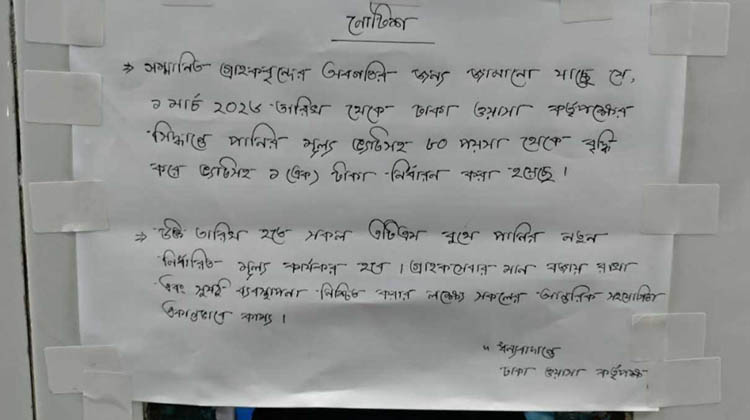 নোটিশ
⇒ সম্মানিত গ্রাহকবৃন্দের অবগতির জন্য জানানো যাচ্ছে যে,
১ মার্চ ২০২৬ তারিখ থেকে ঢাকা ওয়াসা কর্তৃপক্ষের
সিদ্ধান্তে পানির মূল্য ভ্যাটসহ ৮০ পয়সা থেকে বৃদ্ধি
করে ভ্যাটসহ ১ (এক) টাকা নির্ধারন করা হয়েছে।
⇒ উক্ত তারিখ হতে সকল এটিএম বুথে পানির নতুন
নির্ধারিত মূল্য কার্যকর হবে। গ্রাহকসেবার মান বজায় রাখা
এবং সুষ্ঠু ব্যবস্থাপনা নিশ্চিত করার লক্ষ্যে সকলের আন্তরিক সহযোগিতা
একান্তভাবে কাম্য।
" ধন্যবাদান্তে
ঢাকা ওয়াসা কর্তৃপক্ষ